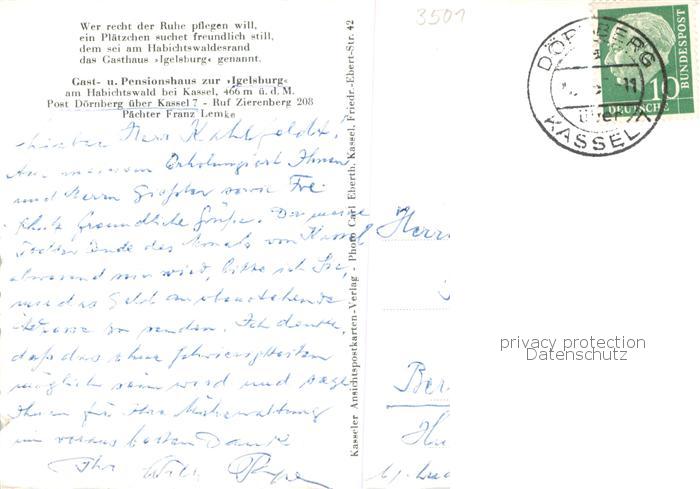 3501
Wer recht der Ruhe pflegen will,
ein Plätzchen suchet freundlich still,
dem sei am Habichtswaldesrand
das Gasthaus »Igelsburg« genannt.
Gast- u. Pensionshaus zur »Igelsburg«
am Habichtswald bei Kassel, 466 m ü. d. M.
Post Dörnberg über Kassel 7 - Ruf Zierenberg 208
Pächter Franz Lemke
Lieber Herr
Aus meinem Erholungsort Ihnen
und Herrn sowie
freundliche Grüße. Da meine
Tochter Ende des Monats von Kassel
abwesend sein wird, bitte ich Sie,
mir das Geld an obenstehende
Adresse zu senden. Ich denke,
daß das ohne Schwierigkeiten
möglich sein wird und sage
Ihnen für Ihre Mühewaltung
im voraus besten Dank
Ihr
Kasseler Ansichtspostkarten-Verlag - Photo Carl Eberth, Kassel, Friedr.-Ebert-Str. 42
Herrn
Ber
DÖRNBERG
über
KASSEL
10
DEUTSCHE
BUNDESPOST
privacy protection
Datenschutz